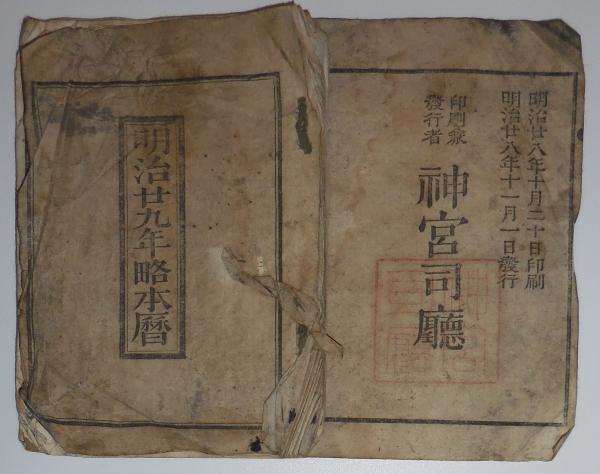 明治廿八年十月二十日印刷
明治廿八年十一月一日發行
印刷兼
發行者
神宮司廳
明治廿九年略本暦